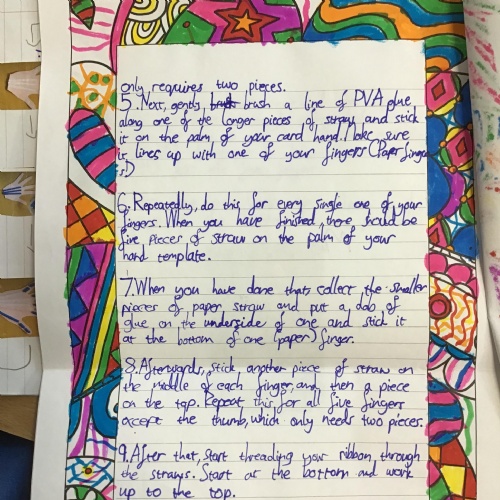 only requires two pieces.
5. Next, gently, brush a line of PVA glue
along one of the longer pieces of straw and stick
it on the palm of your card hand. Make sure
it lines up with one of your fingers (Paper fingers
is!)
6. Repeatedly, do this for every single one of your
fingers. When you have finished, there should be
five pieces of straw on the palm of your
hand template.
7. When you have done that, collect the smaller
pieces of paper straw and put a dab of
glue on the underside of one and stick it
at the bottom of one (paper) finger.
8. Afterwards, stick another piece of straw on
the middle of each finger, and then a piece
on the top. Repeat this for all five fingers
accept the thumb, which only needs two pieces.
9. After that, start threading your ribbon, through
the straws. Start at the bottom and work
up to the top.